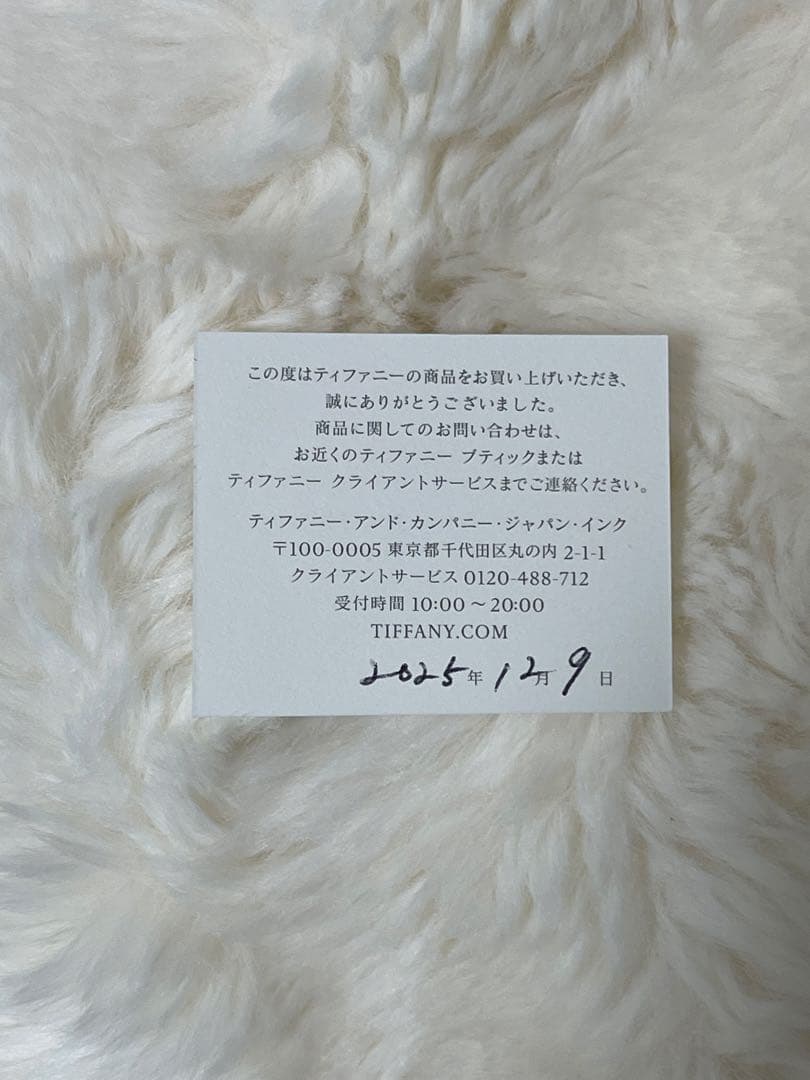 この度はティファニーの商品をお買い上げいただき、
誠にありがとうございました。
商品に関してのお問い合わせは、
お近くのティファニー ブティックまたは
ティファニー クライアントサービスまでご連絡ください。
ティファニー・アンド・カンパニー・ジャパン・インク
〒100-0005 東京都千代田区丸の内 2-1-1
クライアントサービス 0120-488-712
受付時間 10:00 〜 20:00
TIFFANY.COM
2025年12月9日